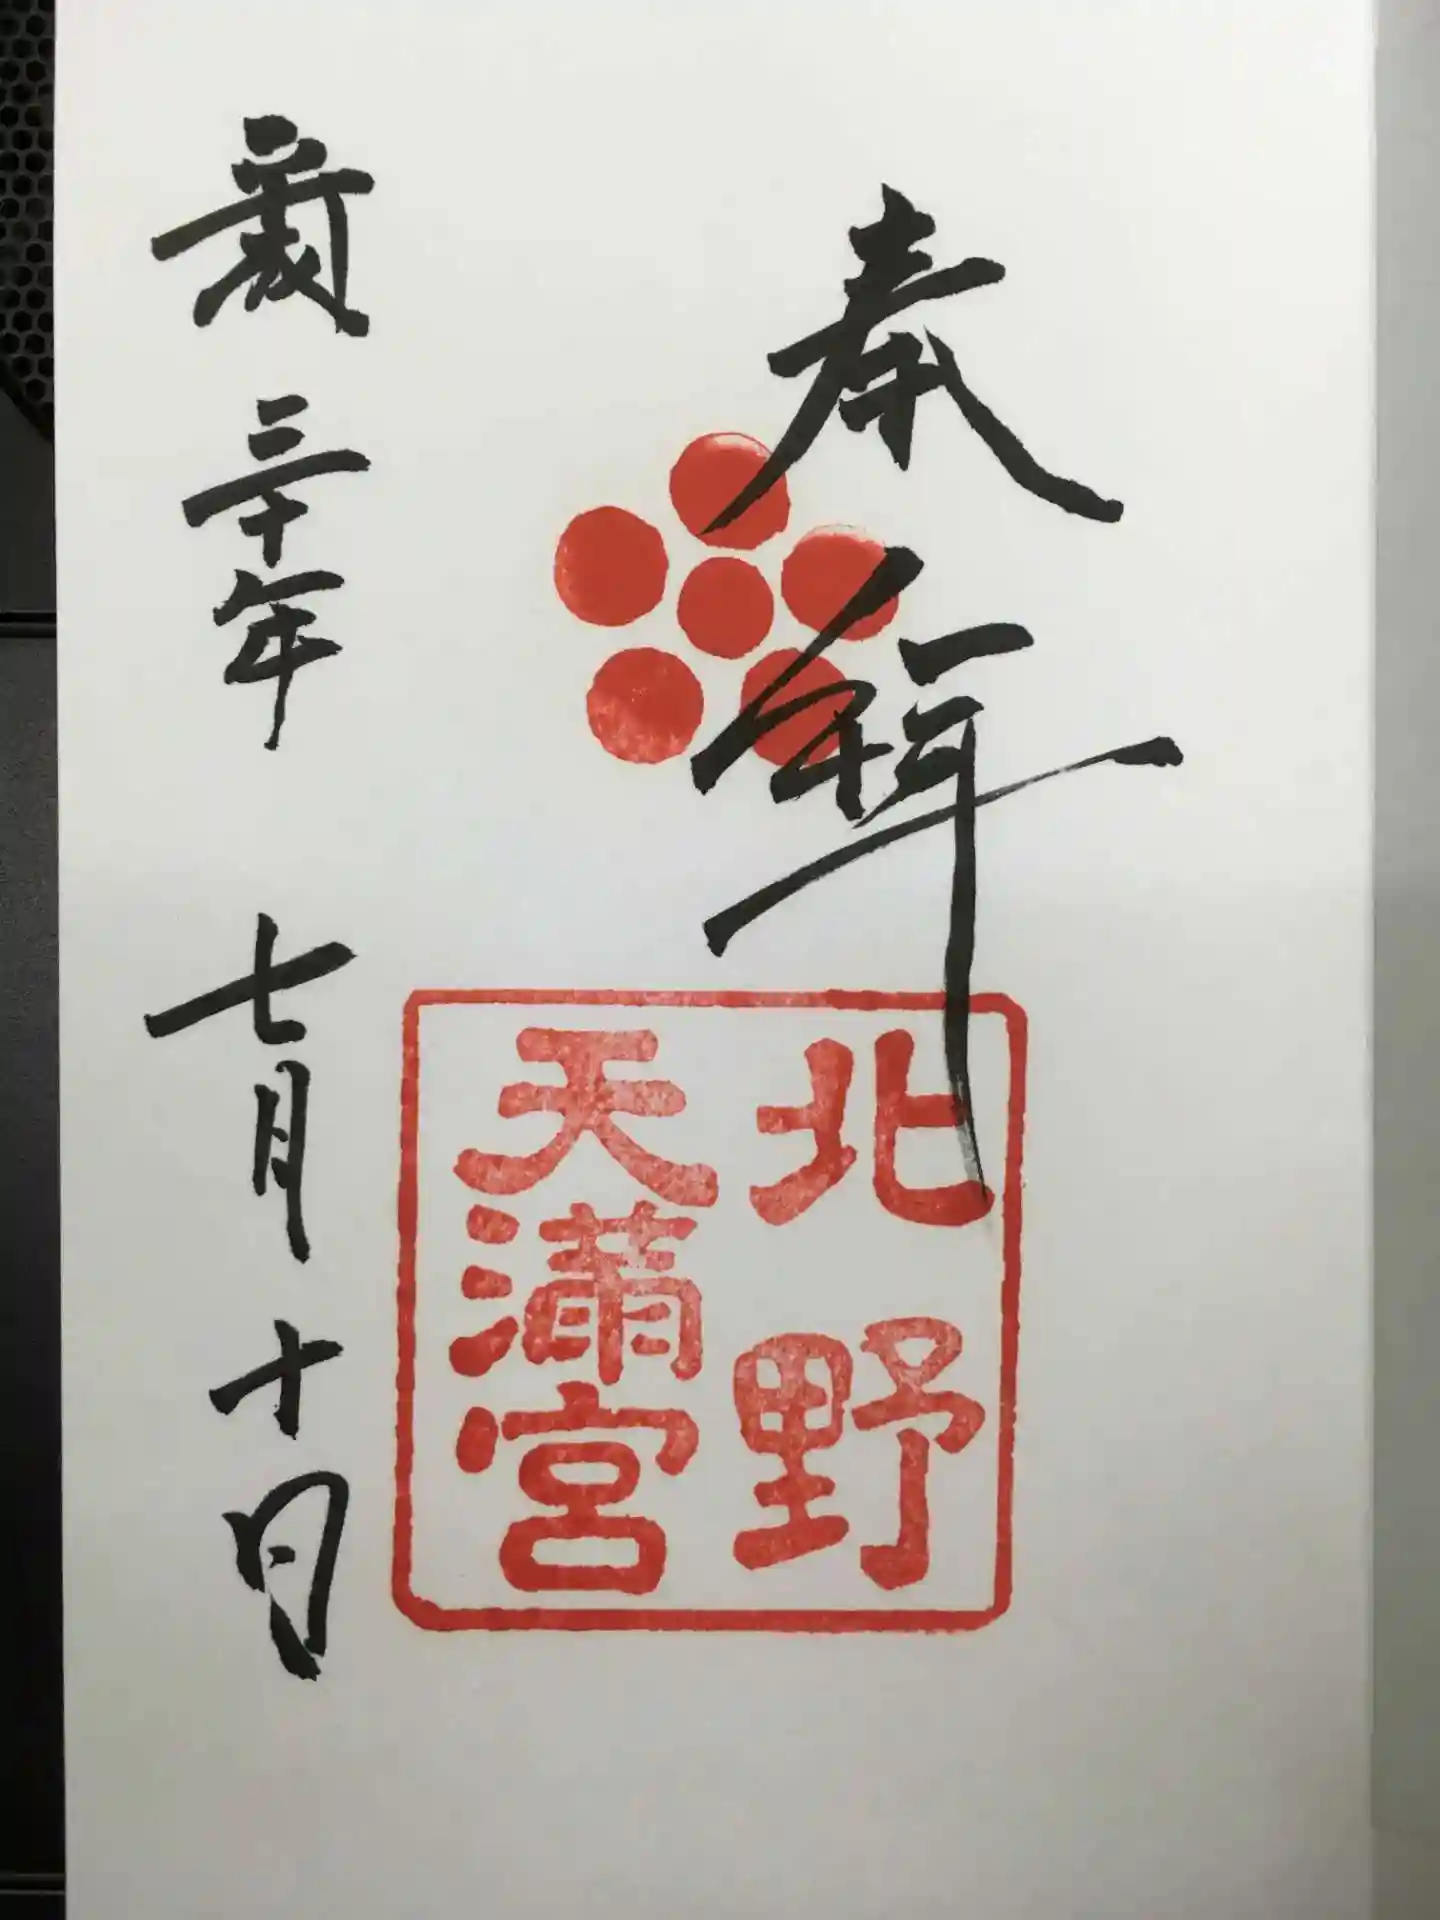 奉拝
北野
天満宮
三十年 七月十日